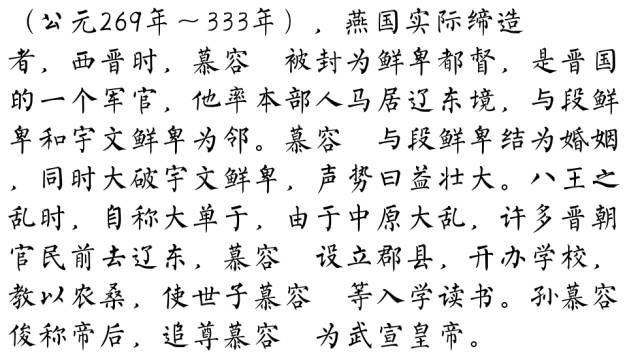 （公元269年～333年），燕国实际缔造
者，西晋时，慕容　被封为鲜卑都督，是晋国
的一个军官，他率本部人马居辽东境，与段鲜
卑和宇文鲜卑为邻。慕容　与段鲜卑结为婚姻
，同时大破宇文鲜卑，声势曰益壮大。八王之
乱时，自称大单于，由于中原大乱，许多晋朝
官民前去辽东，慕容　设立郡县，开办学校，
教以农桑，使世子慕容　等入学读书。孙慕容
俊称帝后，追尊慕容　为武宣皇帝。